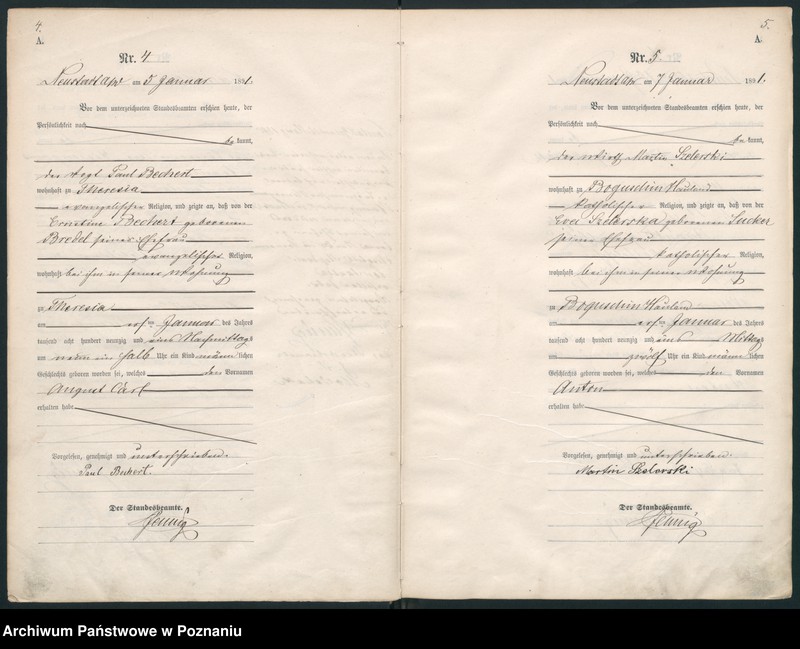 4.
A.
Nr. 4
Neustadt a/W am 5 Januar 1891.
Vor dem unterzeichneten Standesbeamten erschien heute, der
Persönlichkeit nach
be kannt,
der Vogt Paul Bechert
wohnhaft zu Theresia
evangelischer Religion, und zeigte an, daß von der
Ernstine Bechert geborenen
Bredel seiner Ehefrau
evangelischer Religion,
wohnhaft bei ihm in seiner Wohnung
zu Theresia
am ersten Januar des Jahres
tausend acht hundert neunzig und eins Nachmittags
um neun ein halb Uhr ein Kind männ lichen
Geschlechts geboren worden sei, welches den Vornamen
August Carl
erhalten habe
Vorgelesen, genehmigt und unterschrieben.
Paul Bechert
Der Standesbeamte.
5.
A.
Nr. 5
Neustadt a/W am 7 Januar 1891.
Vor dem unterzeichneten Standesbeamten erschien heute, der
Persönlichkeit nach
be kannt,
der Wirth Martin Szelerski
wohnhaft zu Boguschin Hauland
katholischer Religion, und zeigte an, daß von der
Eva Szelerska geborenen Sucker
seiner Ehefrau
katholischer Religion,
wohnhaft bei ihm in seiner Wohnung
zu Boguschin Hauland
am ersten Januar des Jahres
tausend acht hundert neunzig und eins Mittags
um zwölf Uhr ein Kind männ lichen
Geschlechts geboren worden sei, welches den Vornamen
Anton
erhalten habe
Vorgelesen, genehmigt und unterschrieben.
Martin Szelerski
Der Standesbeamte.
Archiwum Państwowe w Poznaniu